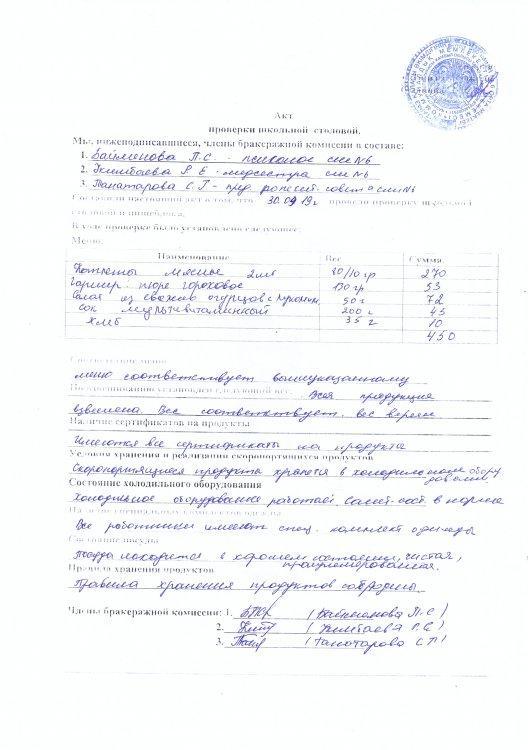 Акт
проверки школьной столовой.
Мы, нижеподписавшиеся, члены бракеражной комиссии в составе:
1. П.С. - психолог сш №6
2. Р.Е. - медсестра сш №6
3. Танатарова С.Т - пред. родител. совета сш №6
Составили настоящий акт о том, что 30.09.19г провели проверку школьной
столовой и пищеблока.
В ходе проверке было установлено следующее:
Меню:
Наименование Вес Сумма.
Котлеты мясные 2шт 80/10 гр 270
Гарнир пюре гороховое 130 гр 53
Салат из свежих огурцов с 50 г 72
Сок мультивитаминный 200 г 45
Хлеб 35 г 10
450
Соответствие меню
меню соответствует вышеуказанному
следующий вес. Вся продукция
взвешена. Вес соответствует. вес в норме
Наличие сертификатов на продукты
Имеются все сертификаты на продукта
Условия хранения и реализации скоропортящихся продуктов
Скоропортящиеся продукта хранятся в холодильном обору
довании
Состояние холодильного оборудования
Холодильное оборудование работает. в норме
Наличие специальных комплектов одежды
Все работники имеют спец. комплект одежды
Состояние посуды
Посуда находится в хорошем состоянии, чистая,
Правила хранения продуктов
Правила хранения продуктов соблюдены.
Члены бракеражной комиссии: 1. П.С)
2. Р.Е)
3. (Танатарова С.Т)